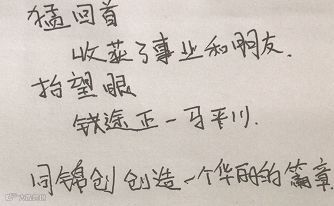 猛回首
收获了事业和朋友.
抬望眼
钱途正一马平川.
同锦创创造一个华丽的篇章